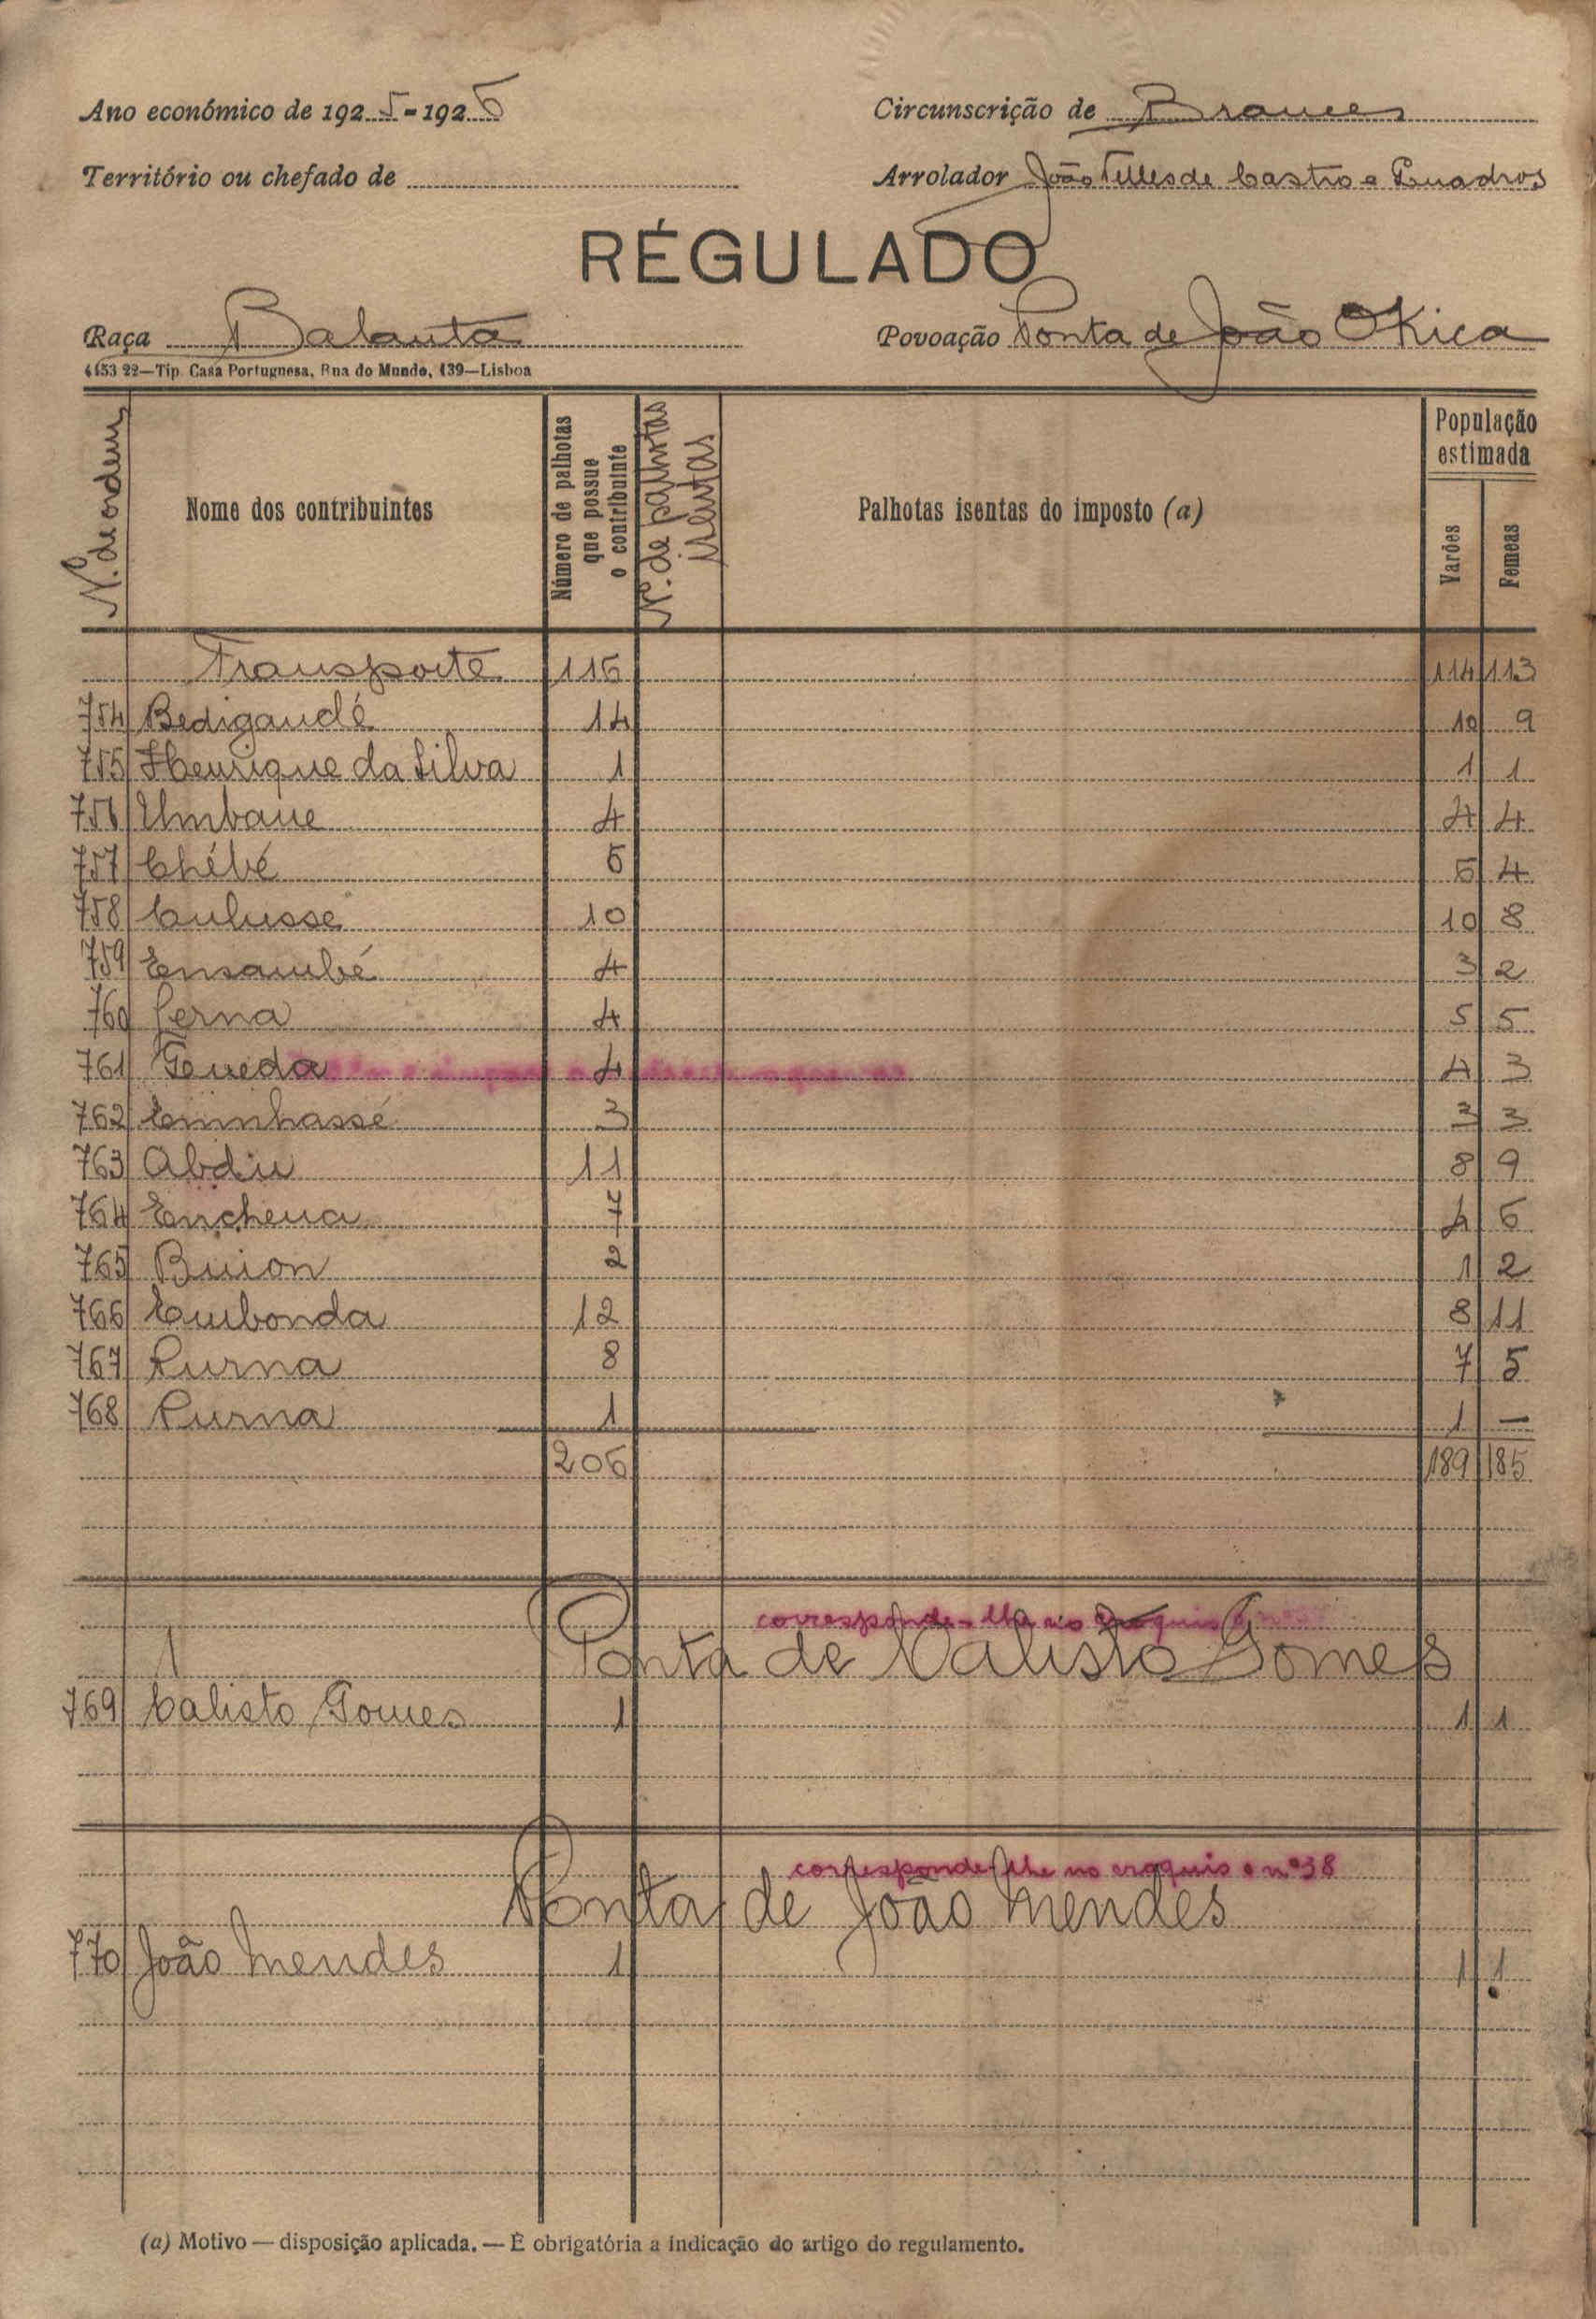 Ano económico de 1925-1926
Circunscrição de Brames
Território ou chefado de
Arrolador João Telles de Castro e Quadros
RÉGULADO
Raça Balanta
Povoação Ponta de João OKica
4153 22—Tip. Casa Portuguesa, Rua do Mundo, 139—Lisboa
N. de ordem
Nome dos contribuintes
Número de palhotas que possue o contribuinte
N.º de palhotas isentas
Palhotas isentas do imposto (a)
População estimada
Varões
Femeas
Transporte 115 114 113
754 Bedigandé 14 10 9
755 Henrique da Silva 1 1 1
756 Umbane 4 4 4
757 Chébé 6 6 4
758 Culusse 10 10 8
759 Ensambé 4 3 2
760 Cerna 4 5 5
761 Teneda 4 4 3
762 Emnhassé 3 3 3
763 Abdiu 11 8 9
764 Enchena 7 4 6
765 Buion 2 1 2
766 Cumbonda 12 8 11
767 Qurna 8 7 5
768 Qurna 1 1 —
206 189 185
corresponde-lhe no croquis o nº
1 Ponta de Calisto Gomes
769 Calisto Gomes 1 1 1
corresponde-lhe no croquis o nº 38
Ponta de João Mendes
770 João Mendes 1 1 1
(a) Motivo — disposição aplicada. — É obrigatória a indicação do artigo do regulamento.